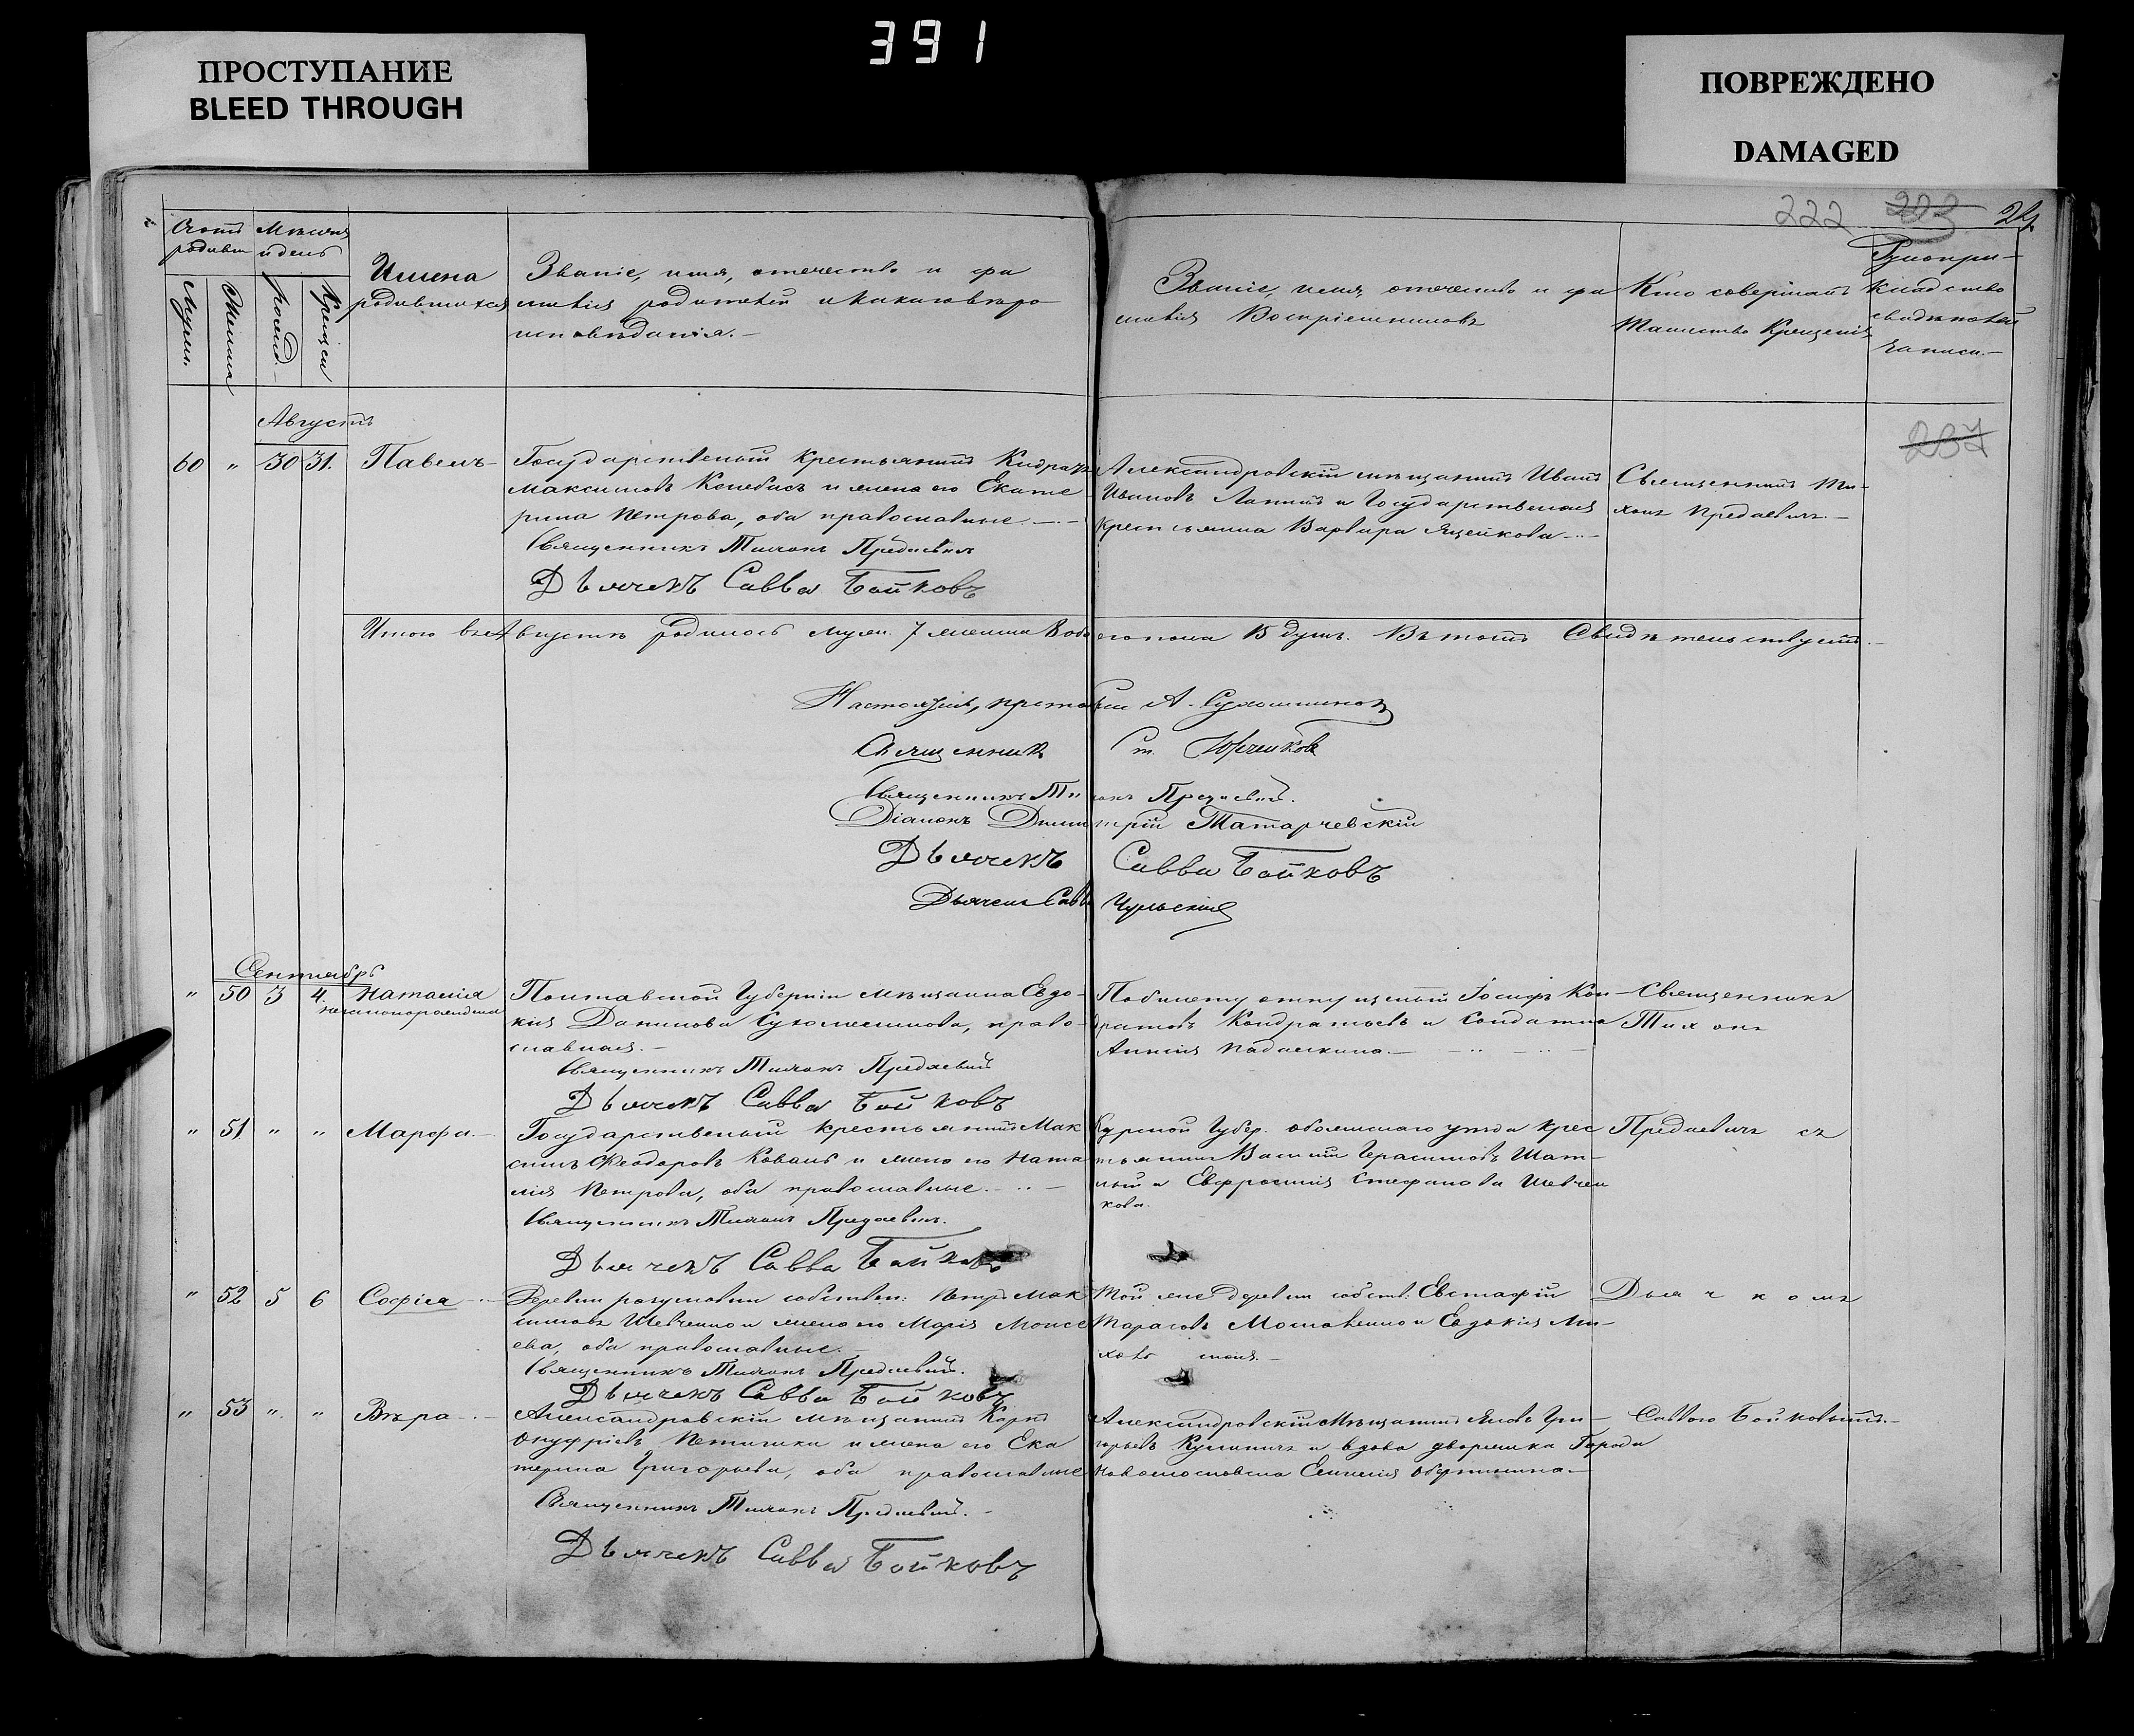 391
ПРОСТУПАНИЕ
BLEED THROUGH
ПОВРЕЖДЕНО
DAMAGED
222 223 24
Счетъ родивш
Мѣсяцъ и день
Мужск.
Женска
рожд.
Крещен
Имена
родившихся
Званіе, имя, отечество и фа
милія родителей и какаго вѣро
исповѣданія.—
Званіе, имя, отечество и фа
милія Воспріемниковъ
Кто совершалъ
Таинство Крещенія
Рукопри-
кладство
свидѣтелей
записи.—
237
Августъ
60 " 30 31. Павелъ
Государственый крестьянинъ
Максимовъ и жена его Екате
рина Петрова, оба православные.—
Священникъ Тихонъ Предаевичъ
Дьячекъ Савва Бойковъ
Александровскій мѣщанинъ Иванъ
Ивановъ Лапинъ и Государственая
крестьянка Варвара Яцейкова
Священникъ Ти-
хонъ Предаевичъ.—
Итого въ Августѣ родилось мужи. 7 женска 8 обоего пола 15 душъ. Въ томъ Свидѣтельствуетъ.—
Настоятель, А. Сухомлиновъ
Священникъ Ст. Юрченковъ
Священникъ Тихонъ Предаевичъ.
Діаконъ Димитрій Татарчевскій
Дьячекъ Савва Бойковъ
Дьячекъ Савва
Сентябрь
" 50 3 4. Наталія
незаконорожденна
Полтавской Губерніи мѣщанка Евдо-
кія Данилова Сухомлинова, право-
славная.—
Священникъ Тихонъ Предаевичъ
Дьячекъ Савва Бойковъ
По билету отпущеный Іосифъ Кон-
дратовъ Кондратьевъ и Солдатка
Анисія Падалкина.—
Священникъ
Тихонъ
" 51 " " Марфа.—
Государственый крестьянинъ Мак
симъ Феодоровъ Коваль и жена его Ната
лія Петрова, оба православные.—
Священникъ Тихонъ Предаевичъ.
Дьячекъ Савва Бойковъ
Курской Губер. обоянскаго уѣзда крес
тьянинъ Василій Герасимовъ Шат-
лый и Евфросинія Стефанова Шевчен
кова.
Предаевичъ съ
" 52 5 6 Софія
Деревни разумовки собствен. Петръ Мак
симовъ Шевченко и жена его Марія Моисе
ева, оба православные.
Священникъ Тихонъ Предаевичъ.
Дьячекъ Савва Бойковъ
Той же деревни собств: Евстафій
Тарасовъ Московенко и Евдокія Ми-
Дьячкомъ
" 53 " " Вѣра
Александровскій мѣщанинъ Карпъ
Онуфріевъ и жена его Ека
терина Григорьева, оба православные
Священникъ Тихонъ Предаевичъ.
Дьячекъ Савва Бойковъ
Александровскій мѣщанинъ Яковъ Гри-
горьевъ и вдова дворянка Города
Новомосковска
Саввою Бойковымъ.—